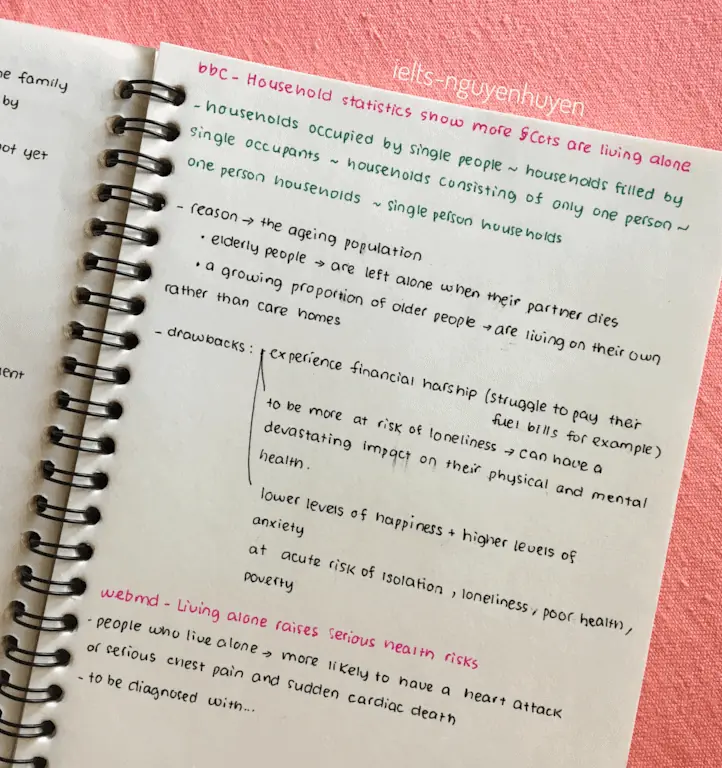 ielts-nguyenhuyen
e family
by
ot yet
ent
bbc - Household statistics show more Scots are living alone
- households occupied by single people ~ households filled by
single occupants ~ households consisting of only one person ~
one person households ~ single person households
- reason → the ageing population
• elderly people → are left alone when their partner dies
• a growing proportion of older people → are living on their own
rather than care homes
- drawbacks: experience financial harship (struggle to pay their
fuel bills for example)
to be more at risk of loneliness → can have a
devastating impact on their physical and mental
health.
lower levels of happiness + higher levels of
anxiety
at acute risk of isolation, loneliness, poor health,
poverty
webmd - Living alone raises serious health risks
- people who live alone → more likely to have a heart attack
or serious chest pain and sudden cardiac death
- to be diagnosed with...